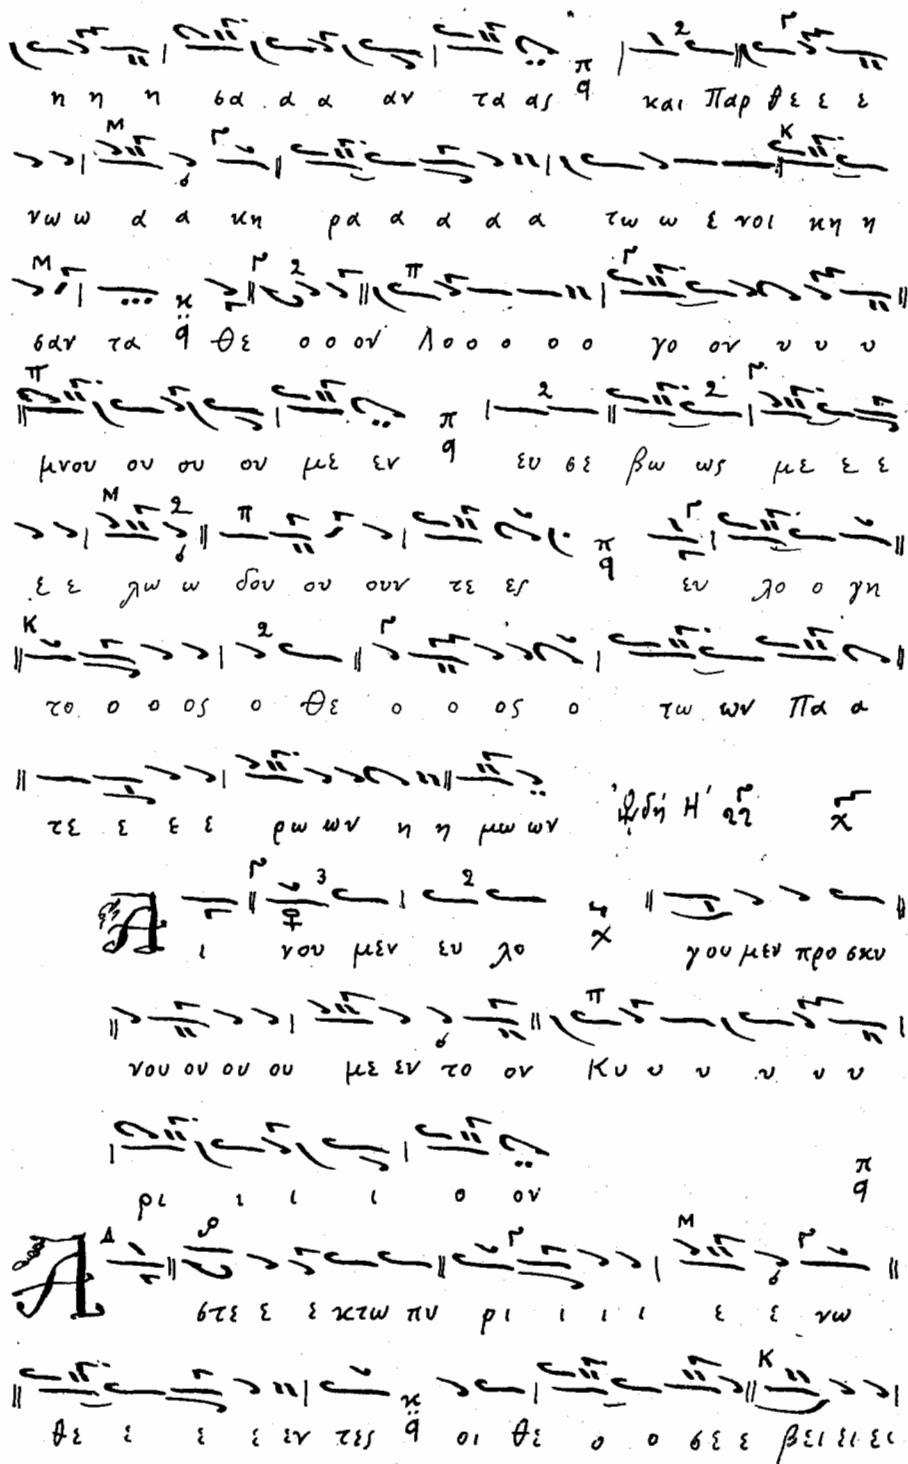 η η η σα α α αν τα ας π q και Παρ θε ε ε
νω ω α α κη ρα α α α α τω ω ε νοι κη η
σαν τα κ q θε ο ο ον Λο ο ο ο ο γο ον υ υ υ
μνου ου ου ου με εν π q ευ σε βω ως με ε ε
ε ε λω ω δου ου ουν τε ες π q ευ λο ο γη
το ο ο ος ο θε ο ο ος ο τω ων Πα α
τε ε ε ε ρω ων η η μω ων ᾨδή Η΄
Α ι νου μεν ευ λο γου μεν προ σκυ
νου ου ου ου με εν το ον Κυ υ υ υ υ υ
ρι ι ι ι ο ον π q
Α στε ε ε κτω πυ ρι ι ι ι ε ε νω
θε ε ε ε εν τες κ q οι θε ο ο σε ε βει ει ει